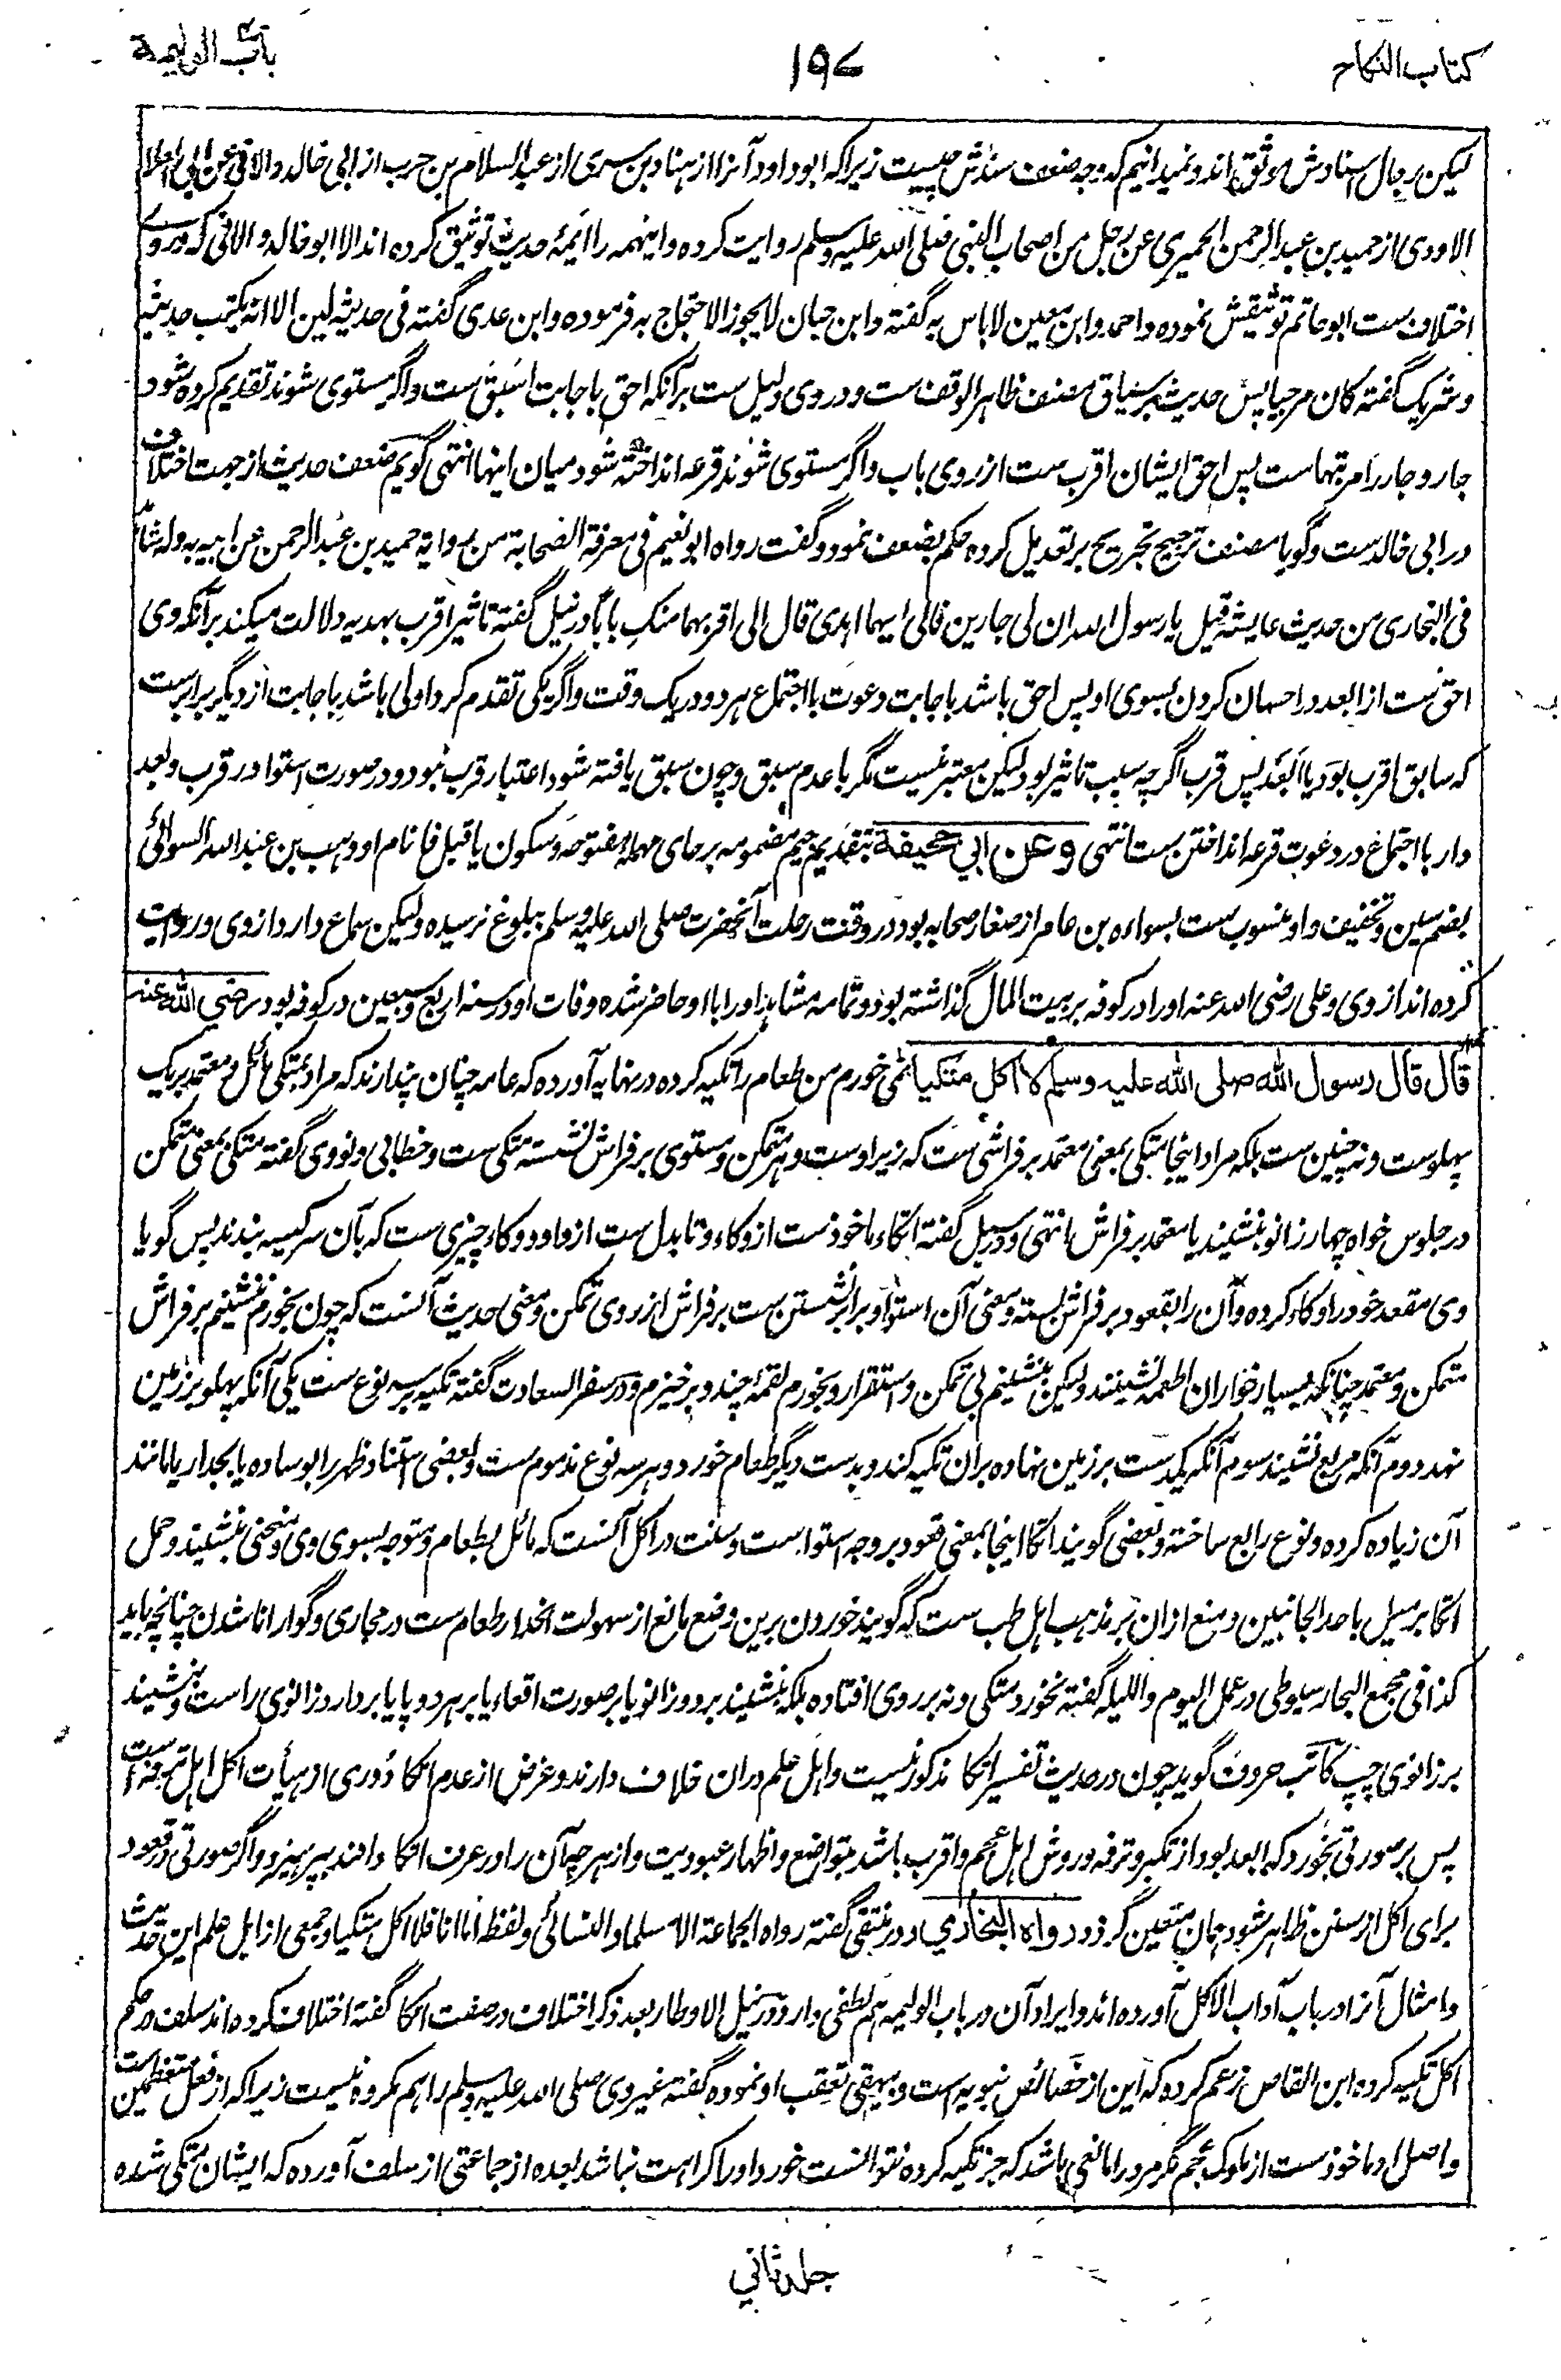 کتاب النکاح
۱۹۷
باب الولیمة
لیکن رجال اسنادش موثق اند و نمیدانیم که وجه ضعف سندش چیست زیرا که ابوداود آنرا از هناد بن سری از عبد السلام بن حرب از ابی خالد دالانی عن ابی العلاء
الاودی از حمید بن عبد الرحمن الحمیری عن رجل من اصحاب النبی صلی الله علیه وسلم روایت کرده و اینهمه را ائمۀ حدیث توثیق کرده اند الا ابو خالد دالانی که در وی
اختلاف ست ابو حاتم توثیقش نموده و احمد و ابن معین لا باس به گفته و ابن حبان لا یجوز الاحتجاج به فرموده و ابن عدی گفته فی حدیثه لین الا انه یکتب حدیثه
و شریک گفته کان مرجیا پس حدیث بر سیاق مصنف ظاهر الوقف ست و در وی دلیل ست بر آنکه احق باجابت اسبق ست و اگر مستوی شوند تقدیم کرده شود
جار و جار را مرتبهاست پس احق ایشان اقرب ست از روی باب و اگر مستوی شوند قرعه انداخته شود میان اینها انتهی گویم ضعف حدیث از جهت اختلاف
در ابی خالدست و گویا مصنف ترجیح تجریح بر تعدیل کرده حکم بضعف نمود و گفت رواه ابو نعیم فی معرفة الصحابة من روایة حمید بن عبد الرحمن عن ابیه به وله شاهد
فی البخاری من حدیث عایشه قیل یا رسول الله ان لی جارین فالی ایهما اهدی قال الی اقربهما منک بابا در نیل گفته تاثیر اقرب بهدیه دلالت میکند بر آنکه وی
احق ست از ابعد در احسان کردن بسوی او پس احق باشد باجابت دعوت با اجتماع هر دو در یک وقت و اگر یکی تقدم کرد اولی باشد باجابت از دیگر برابرست
که سابق اقرب بود یا ابعد پس قرب اگرچه سبب تاثیر بود لیکن معتبر نیست مگر با عدم سبق و چون سبق یافته شود اعتبار قرب نبود و در صورت استوا در قرب و بعد
دار با اجتماع در دعوت قرعه انداختن ست انتهی وعن ابی جحیفة بتقدیم جیم مضمومه بر حای مهملۀ مفتوحه و سکون یا قبل فا نام او وهب بن عبد الله السوائی
بضم سین و تخفیف واو منسوب ست بسواءه بن عامر از صغار صحابه بود در وقت رحلت آنحضرت صلی الله علیه وسلم ببلوغ نرسیده ولیکن سماع دارد از وی و روایت
کرده اند از وی و علی رضی الله عنه او را در کوفه بر بیت المال گذاشته بود و تمامه مشاهد او را با او حاضر شده وفات او در سنه اربع و سبعین در کوفه بود رضی الله عنه
قال قال رسول الله صلی الله علیه وسلم لا آکل متکیا نمی خورم من طعام را تکیه کرده در نهایه آورده که عامه چنان پندارند که مراد بمتکی مائل و معتمد بر یک
پهلوست و نه چنین ست بلکه مراد اینجا متکی بمعنی معتمد بر فراشی ست که زیر اوست و هر متمکن و مستوی بر فراش نشسته متکی ست و خطابی و نووی گفته متکی بمعنی متمکن
در جلوس خواه چهار زانو بنشیند یا معتمد بر فراش انتهی و در سبل گفته اتکاء ماخوذ ست از وکاء و تا بدل ست از واو و وکاء چیزی ست که بآن سر کیسه بندند پس گویا
وی مقعد خود را وکاء کرده و آن را بقعود بر فراش بسته و معنی آن استوا و برابر نشستن ست بر فراش از روی تمکن و معنی حدیث آنست که چون بخورم ننشینم بر فراش
متمکن و معتمد چنانکه بسیار خواران اطعمه نشینند ولیکن بنشینم بی تمکن و استقرار و بخورم لقمۀ چند و برخیزم و در سفر السعادت گفته تکیه بر سه نوع ست یکی آنکه پهلو بر زمین
نهد دوم آنکه مربع نشیند سوم آنکه یکدست بر زمین نهاده بران تکیه کند و بدست دیگر طعام خورد و هر سه نوع مذموم ست و بعضی استناد ظهر را بوساده یا بجدار یا مانند
آن زیاده کرده و نوع رابع ساخته و بعضی گویند اتکا اینجا بمعنی قعود بر وجه استوا ست و سنت در اکل آنست که مائل بطعام و متوجه بسوی وی و منحنی بنشیند و حمل
اتکا بر میل باحد الجانبین و منع از ان بر مذهب اهل طب ست که گویند خوردن برین وضع مانع از سهولت انحدار طعام ست در مجاری و گوارا ناشدن چنانچه باید
کذا فی مجمع البحار سیوطی در عمل الیوم واللیله گفته نخورد متکی و نه بر روی افتاده بلکه بنشیند بر دو زانو یا بر صورت اقعاء یا بر هر دو پا یا بردارد زانوی راست و بنشیند
بر زانوی چپ کاتب حروف گوید چون در حدیث تفسیر اتکا مذکور نیست و اهل علم دران خلاف دارند و غرض از عدم اتکا دوری از هیأت اکل اهل ترفه است
پس بر صورتی بخورد که ابعد بود از تکبر و ترفه و روش اهل عجم و اقرب باشد بتواضع و اظهار عبودیت و از هر چه آن را در عرف اتکا دانند بپرهیزد و اگر صورتی در قعود
برای اکل از سنن ظاهر شود همان متعین گردد رواه البخاری و در منتقی گفته رواه الجماعة الا مسلما والنسائی و لفظ اما انا فلا آکل متکیا و جمعی از اهل علم این حدیث
و امثال آنرا در باب آداب الاکل آورده اند و ایراد آن در باب الولیمه هم لطفی دارد و در نیل الاوطار بعد ذکر اختلاف در صفت اتکا گفته اختلاف کرده اند سلف در حکم
اکل تکیه کرده ابن القاص زعم کرده که این از خصائص نبویه است و بیهقی تعقب او نموده گفته غیر وی صلی الله علیه وسلم را هم مکروه نیست زیرا که از فعل متعظمین است
و اصل او ماخوذ ست از ملوک عجم مگر مرد را مانعی باشد که جز تکیه کرده نتوانست خورد او را کراهت نباشد بعده از جماعتی از سلف آورده که ایشان متکی شده
جلد ثانی